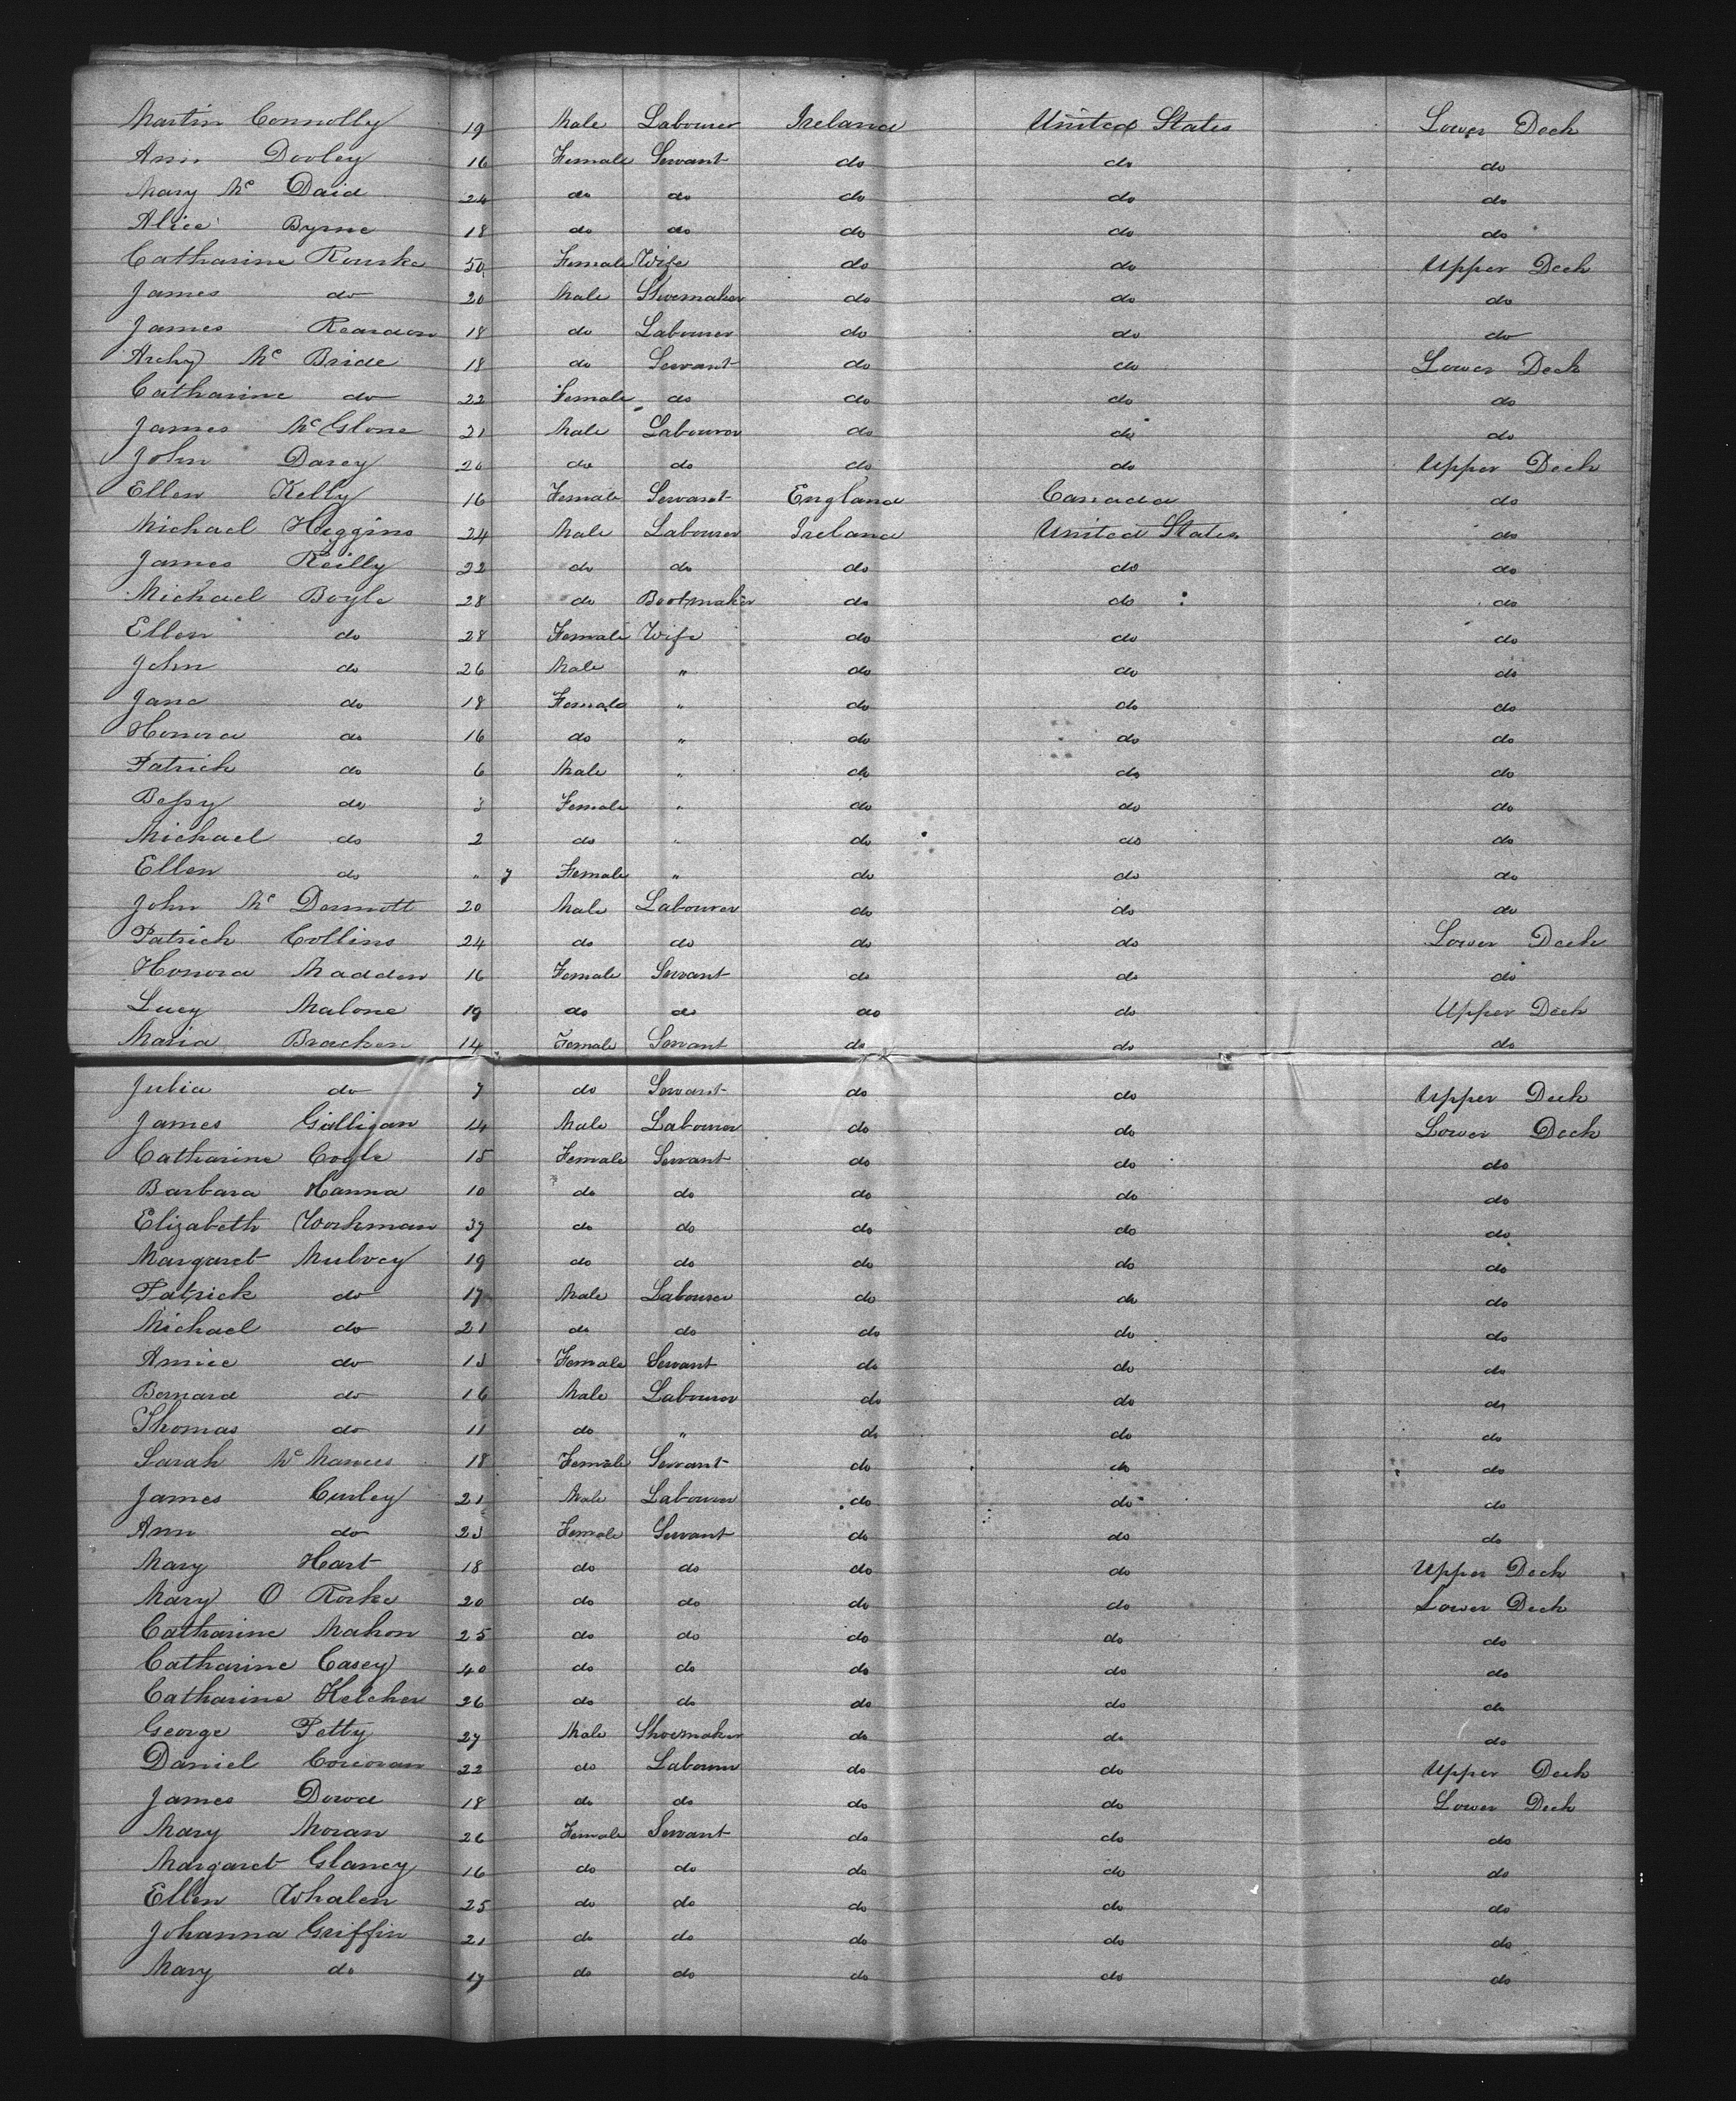 Martin Connolly 19 Male Labourer Ireland United States Lower Deck
Ann Dooley 16 Female Servant do do do
Mary Mc Daid 24 do do do do do
Alice Byrne 18 do do do do do
Catharine Rourke 50 Female Wife do do Upper Deck
James do 20 Male Shoemaker do do do
James Reardon 18 do Labourer do do do
Archy Mc Bride 18 do Servant do do Lower Deck
Catharine do 22 Female do do do do
James McGlone 21 Male Labourer do do do
John Darcy 20 do do do do Upper Deck
Ellen Kelly 16 Female Servant England Canada do
Michael Higgins 24 Male Labourer Ireland United States do
James Reilly 22 do do do do do
Michael Boyle 28 do Bootmaker do do do
Ellen do 28 Female Wife do do do
John do 26 Male " do do do
Jane do 18 Female " do do do
Honora do 16 do " do do do
Patrick do 6 Male " do do do
Bessy do 3 Female " do do do
Michael do 2 do " do do do
Ellen do " 7 Female " do do do
John Mc Dermott 20 Male Labourer do do do
Patrick Collins 24 do do do do Lower Deck
Honora Madden 16 Female Servant do do do
Lucy Malone 19 do do do do Upper Deck
Maria Bracken 14 Female Servant do do do
Julia do 7 do Servant do do Upper Deck
James Gilligan 14 Male Labourer do do Lower Deck
Catharine Cogle 15 Female Servant do do do
Barbara Hanna 10 do do do do do
Elizabeth Workman 37 do do do do do
Margaret Mulvey 19 do do do do do
Patrick do 17 Male Labourer do do do
Michael do 21 do do do do do
Annie do 13 Female Servant do do do
Bernard do 16 Male Labourer do do do
Thomas do 11 do " do do do
Sarah Mc Manus 18 Female Servant do do do
James Curley 21 Male Labourer do do do
Ann do 23 Female Servant do do do
Mary Hart 18 do do do do Upper Deck
Mary O Rorke 20 do do do do Lower Deck
Catharine Mahon 25 do do do do do
Catharine Casey 40 do do do do do
Catharine Kelcher 26 do do do do do
George Petty 27 Male Shoemaker do do do
Daniel Corcoran 22 do Labourer do do Upper Deck
James Dowd 18 do do do do Lower Deck
Mary Moran 26 Female Servant do do do
Margaret Glancy 16 do do do do do
Ellen Whalen 25 do do do do do
Johanna Griffin 21 do do do do do
Mary do 17 do do do do do